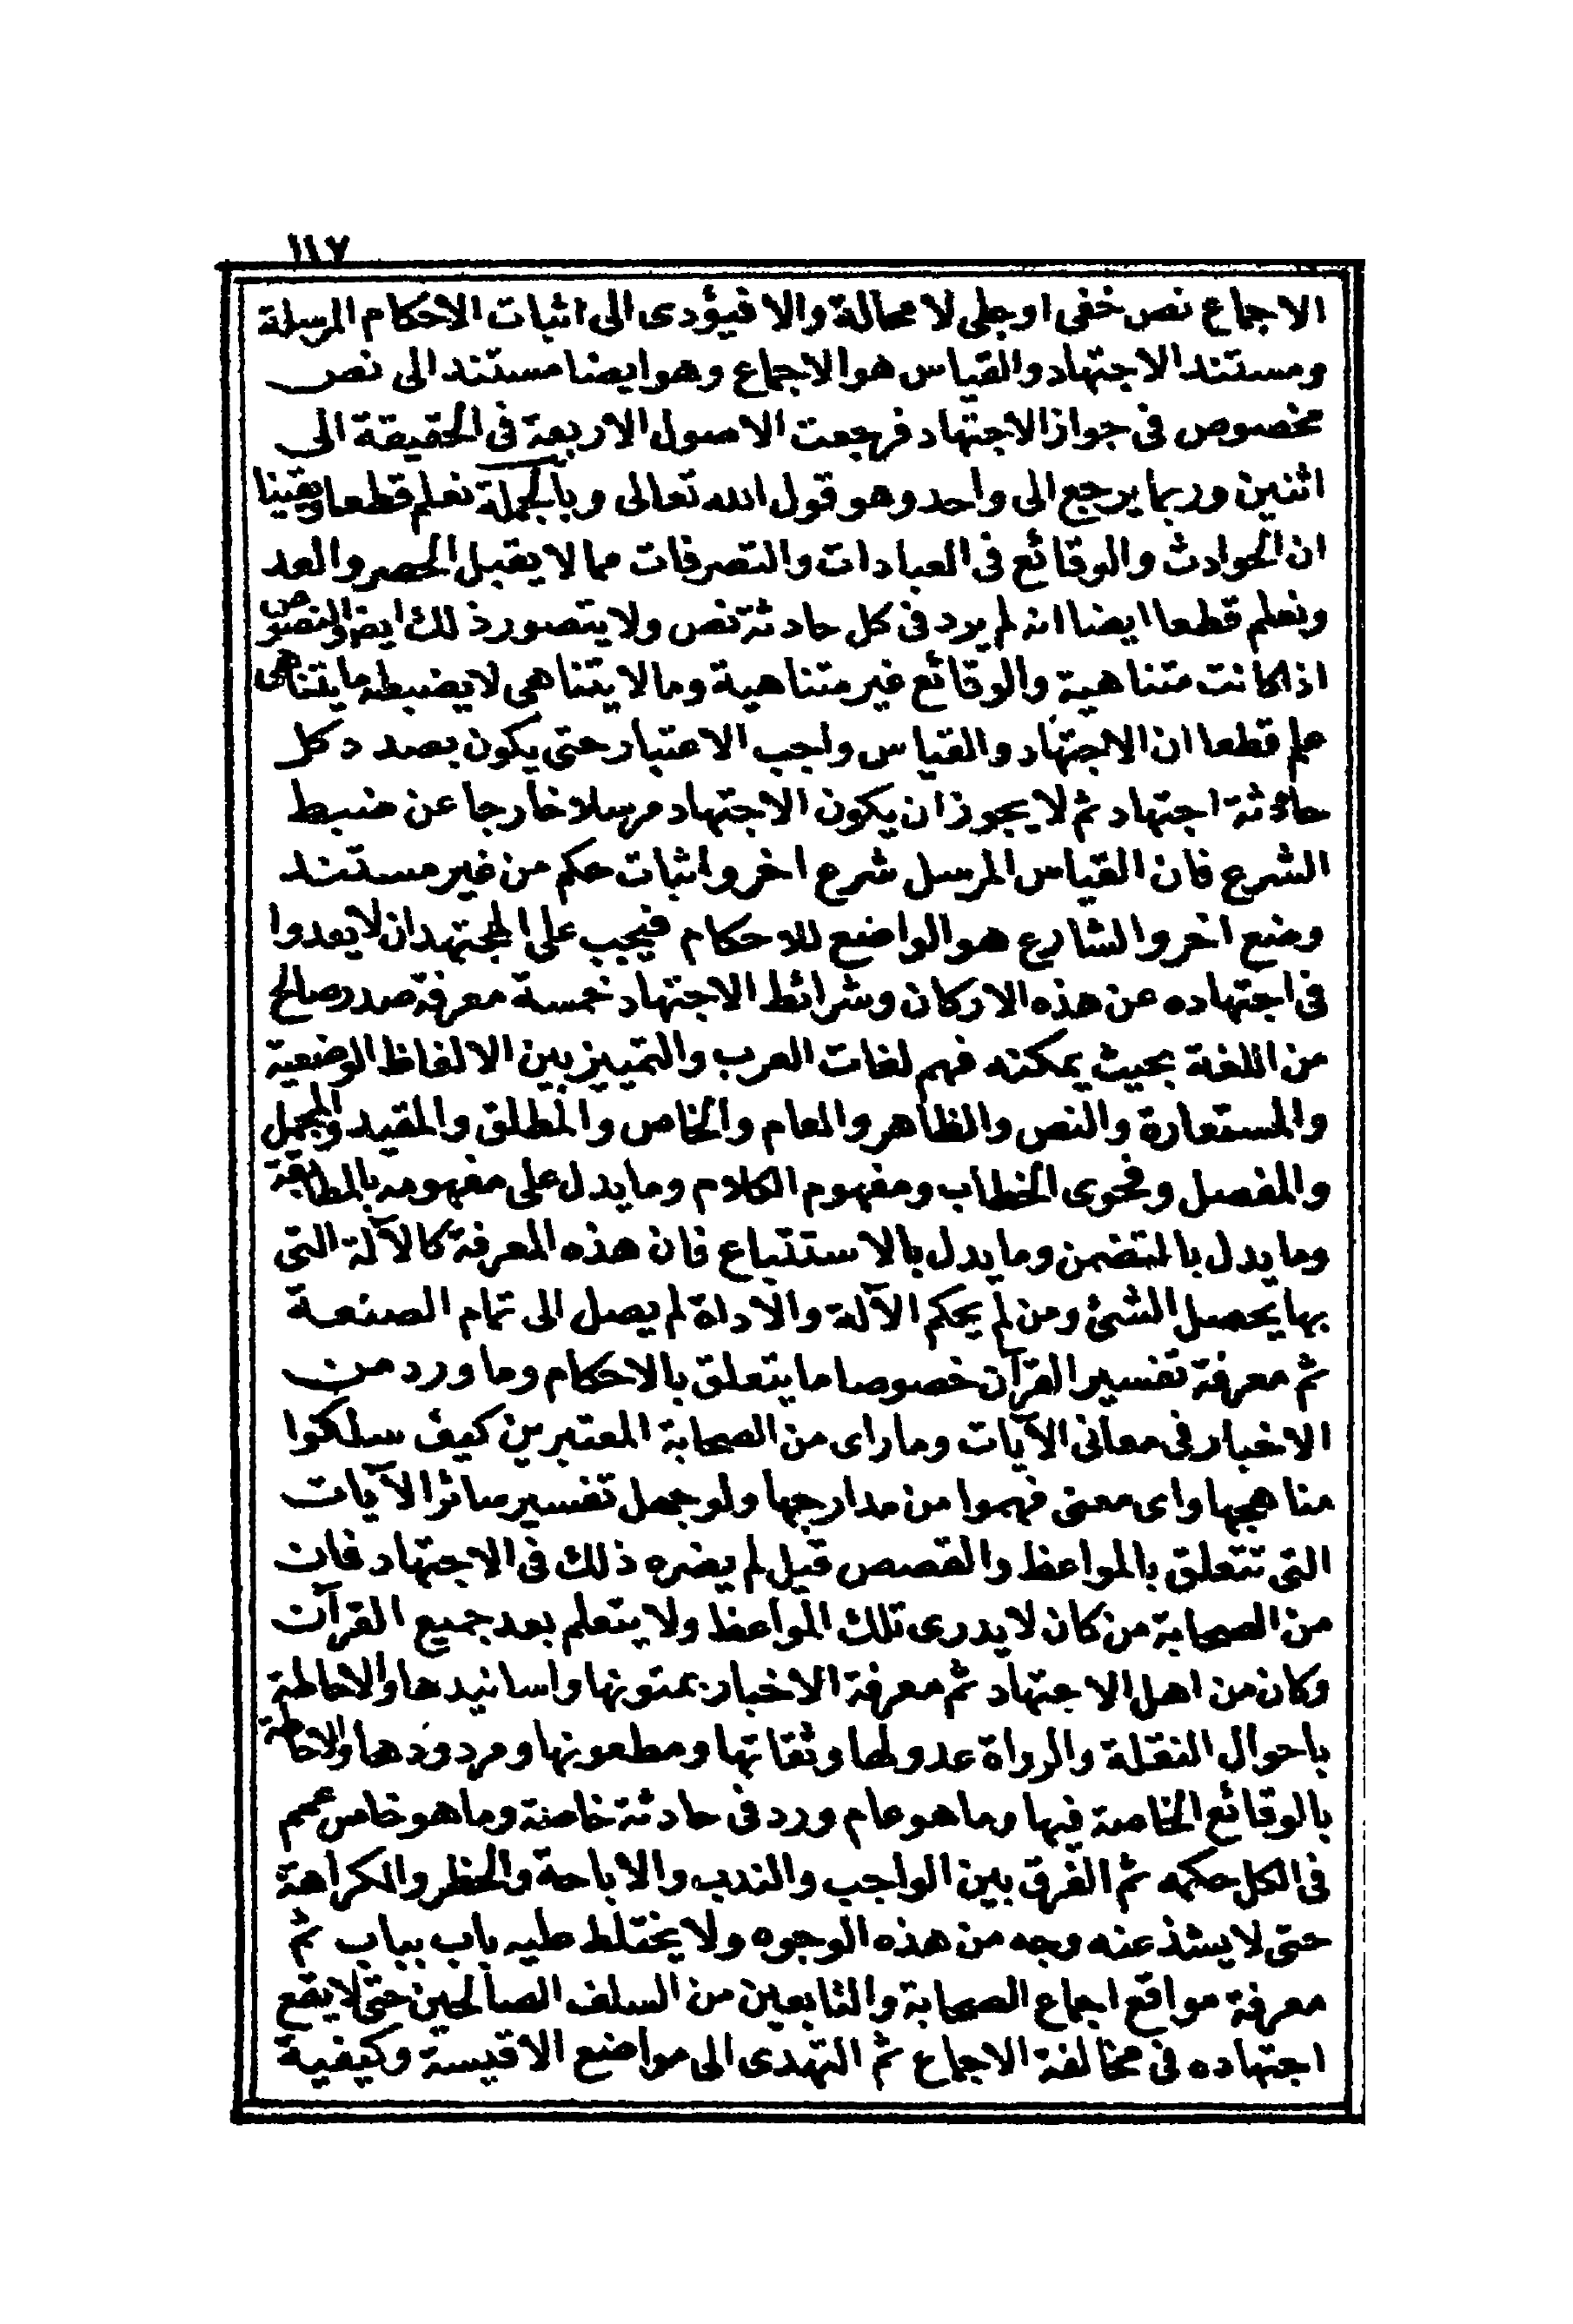 ١١٧
الاجماع نص خفى اوجلى لا محالة والا فيؤدى الى اثبات الاحكام المرسلة
ومستند الاجتهاد والقياس هو الاجماع وهو ايضا مستند الى نص
مخصوص فى جواز الاجتهاد فرجعت الاصول الاربعة فى الحقيقة الى
اثنين وربما يرجع الى واحد وهو قول الله تعالى وبالجملة نعلم قطعا ويقينا
ان الحوادث والوقائع فى العبادات والتصرفات مما لا يقبل الحصر والعد
ونعلم قطعا ايضا انه لم يرد فى كل حادثة نص ولا يتصور ذلك ايضا والنصوص
اذا كانت متناهية والوقائع غير متناهية وما لا يتناهى لا يضبطه ما يتناهى
علم قطعا ان الاجتهاد والقياس واجب الاعتبار حتى يكون بصدد كل
حادثة اجتهاد ثم لا يجوز ان يكون الاجتهاد مرسلا خارجا عن ضبط
الشرع فان القياس المرسل شرع اخر واثبات حكم من غير مستند
وضع اخر والشارع هو الواضع للاحكام فيجب على المجتهد ان لا يعدوا
فى اجتهاده عن هذه الاركان وشرائط الاجتهاد خمسة معرفة صدر صالح
من اللغة بحيث يمكنه فهم لغات العرب والتمييز بين الالفاظ الوضعية
والمستعارة والنص والظاهر والعام والخاص والمطلق والمقيد والمجمل
والمفصل وفحوى الخطاب ومفهوم الكلام وما يدل على مفهومه بالمطابقة
وما يدل بالتضمن وما يدل بالاستتباع فان هذه المعرفة كالآلة التى
بها يحصل الشئ ومن لم يحكم الآلة والاداة لم يصل الى تمام الصنعة
ثم معرفة تفسير القرآن خصوصا ما يتعلق بالاحكام وما ورد من
الاخبار فى معانى الآيات وما راى من الصحابة المعتبرين كيف سلكوا
مناهجها واى معنى فهموا من مدارجها ولو جهل تفسير سائر الآيات
التى تتعلق بالمواعظ والقصص قيل لم يضره ذلك فى الاجتهاد فان
من الصحابة من كان لا يدرى تلك المواعظ ولا يتعلم بعد جميع القرآن
وكان من اهل الاجتهاد ثم معرفة الاخبار بمتونها واسانيدها والاحاطة
باحوال النقلة والرواة عدولها وثقاتها ومطعونها ومردودها والاحاطة
بالوقائع الخاصة فيها وما هو عام ورد فى حادثة خاصة وما هو خاص عمم
فى الكل حكمه ثم الفرق بين الواجب والندب والاباحة والحظر والكراهة
حتى لا يشذ عنه وجه من هذه الوجوه ولا يختلط عليه باب بباب ثم
معرفة مواقع اجماع الصحابة والتابعين من السلف الصالحين حتى لا يقع
اجتهاده فى مخالفة الاجماع ثم التهدى الى مواضع الاقيسة وكيفية